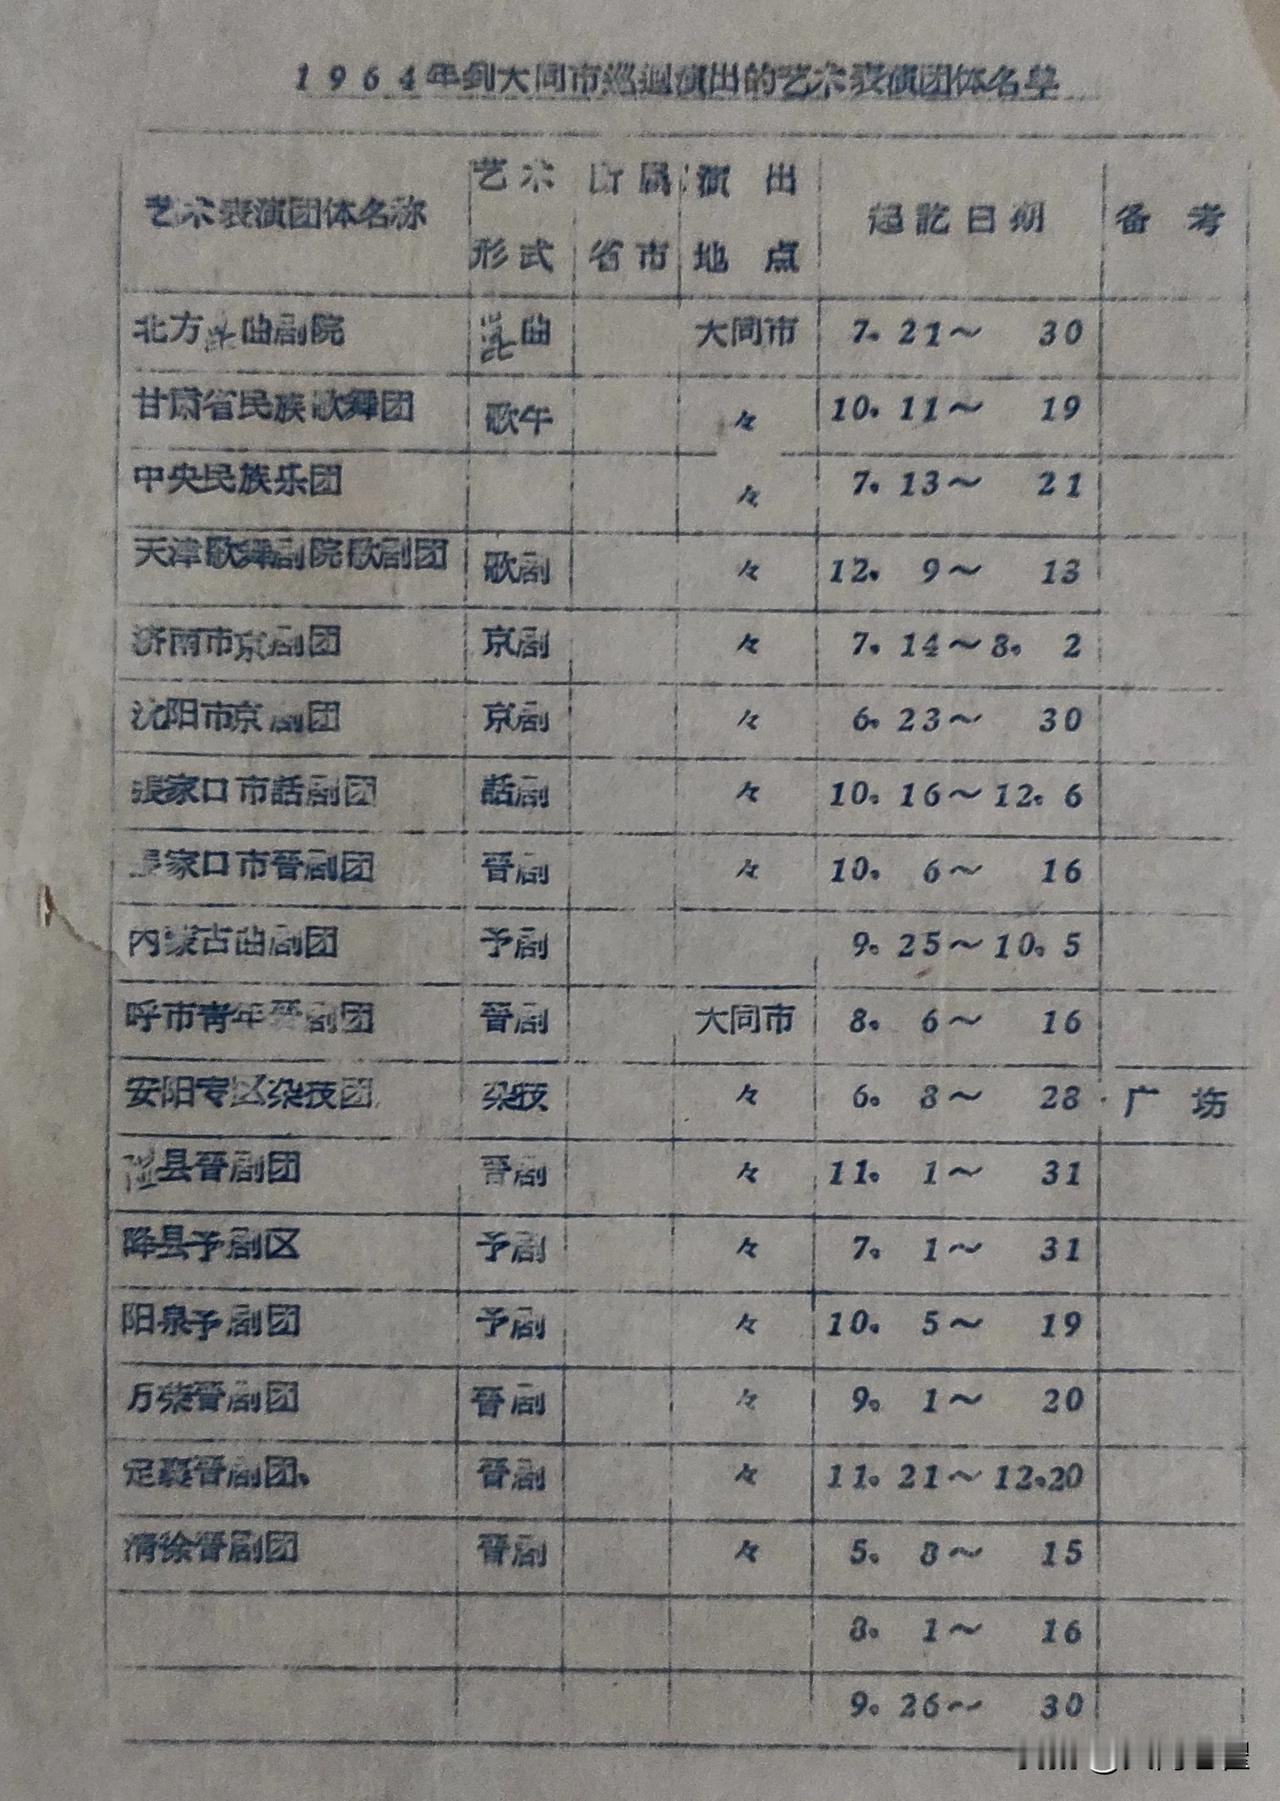 1964年到大同市巡迴演出的艺术表演团体名单
艺术表演团体名称 艺术形式 所属省市 演出地点 起訖日期 备考
北方昆曲剧院 昆曲 大同市 7.21～30
甘肃省民族歌舞团 歌午 々 10.11～19
中央民族乐团 々 7.13～21
天津歌舞剧院歌剧团 歌剧 々 12.9～13
济南市京剧团 京剧 々 7.14～8.2
沈阳市京剧团 京剧 々 6.23～30
張家口市話剧团 話剧 々 10.16～12.6
張家口市晋剧团 晋剧 々 10.6～16
内蒙古曲剧团 予剧 9.25～10.5
呼市青年晋剧团 晋剧 大同市 8.6～16
安阳专区杂技团 杂技 々 6.8～28 广场
县晋剧团 晋剧 々 11.1～31
降县予剧区 予剧 々 7.1～31
阳泉予剧团 予剧 々 10.5～19
万荣晋剧团 晋剧 々 9.1～20
定襄晋剧团、 晋剧 々 11.21～12.20
清徐晋剧团 晋剧 々 5.8～15
8.1～16
9.26～30